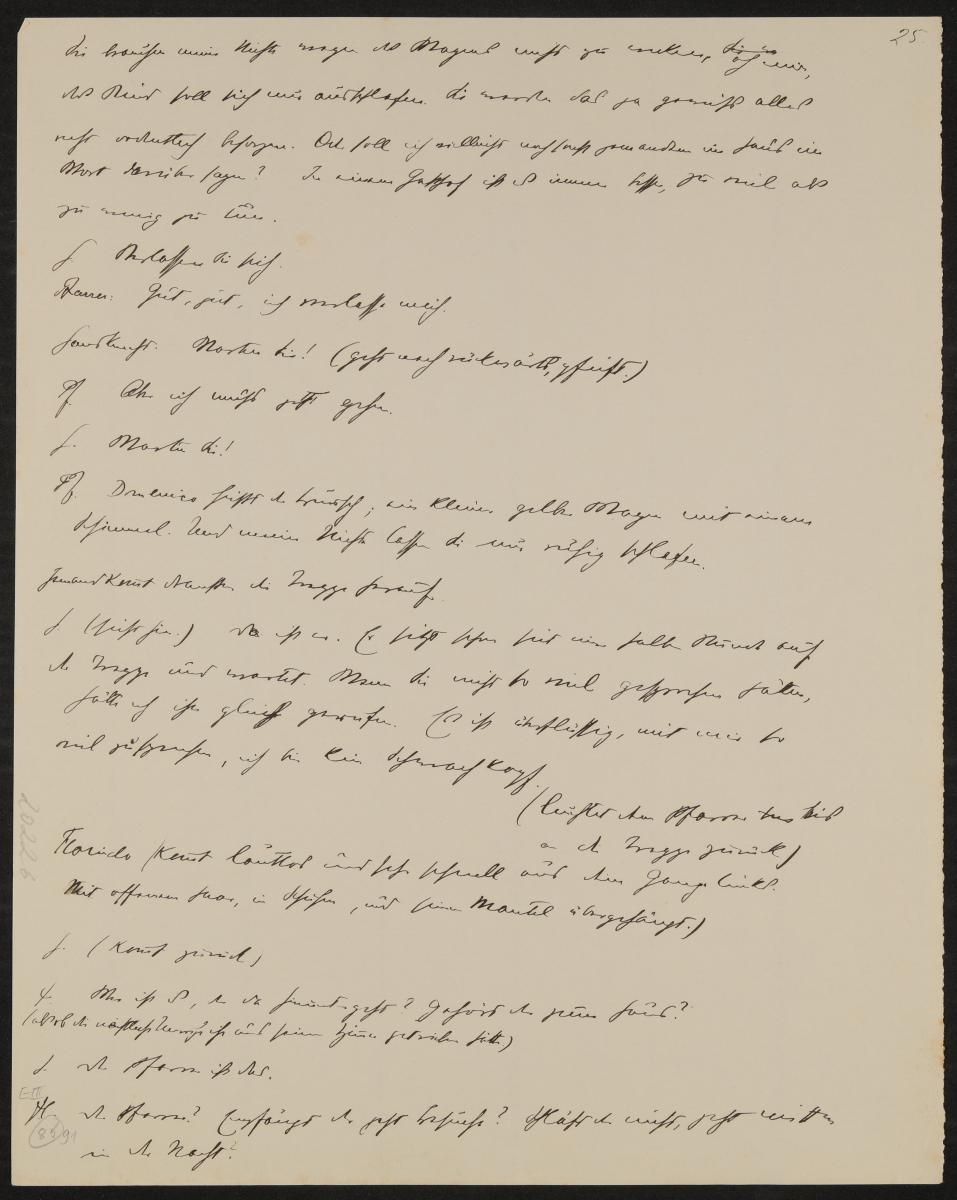 25.
Sie brauchen meine Nichte wegen des Wagens nicht zu wecken,
das Kind soll sich nur ausschlafen. Sie werden das ja gewiß alles
recht ordentlich besorgen. Oder soll ich vielleicht noch sonst jemandem im Haus ein
Wort darüber sagen? In einem Gasthof ist es immer besser, zu viel als
zu wenig zu tun.
H. Verlassen Sie sich.
Pfarrer: Gut, gut, ich verlasse mich.
Hausknecht. Warten Sie! (geht nach rückwärts, pfeift.)
Pf. Aber ich muß jetzt gehen.
H. Warten Sie!
Pf. Domenico heißt der Bursch; ein kleiner gelber Wagen mit einem
Schimmel. Und meine Nichte lassen Sie nur ruhig schlafen.
Jemand kommt draußen die Treppe herauf.
H. (sieht hin.) da ist er. Er sitzt schon seit einer halben Stunde auf
der Treppe und wartet. Wenn Sie nicht so viel gesprochen hätten,
hätte ich ihn gleich gerufen. Es ist überflüssig, mit mir so
viel zu sprechen, ich bin kein Schwachkopf.
(leuchtet dem Pfarrer bis
an die Treppe zurück)
Florindo (kommt lautlos und sehr schnell aus dem Gange links.
Mit offenem Haar, in Schuhen, und seinen Mantel übergehängt.)
H. (kommt zurück)
Fl. Wer ist das, der da hinuntergeht? Gehört der zum Haus?
H. der Pfarrer ist das.
Fl. der Pfarrer? Empfängt der jetzt Besuche? Schläft der nicht, jetzt mitten
in der Nacht?
20226
E III
89 91